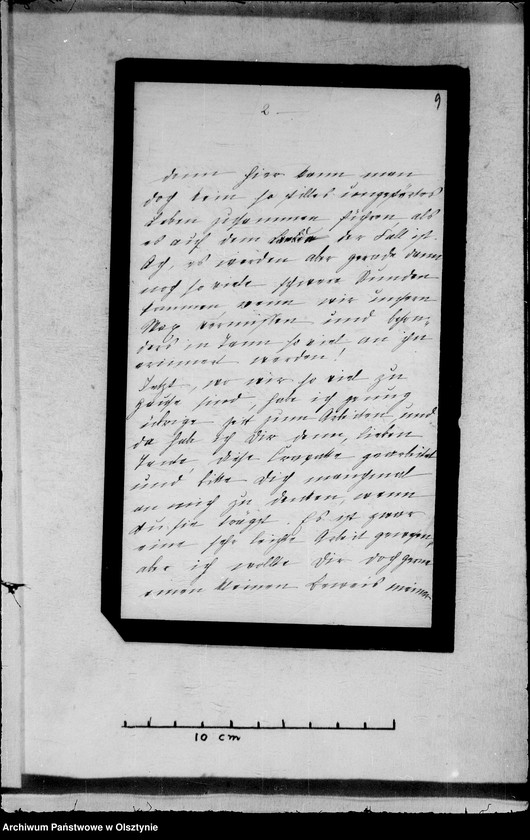 9
2 —
denn hier kann man
doch kein so stilles ungestörtes
Leben zusammen führen, als
es auf dem Lande der Fall ist.
Ach, es werden aber gerade dann
noch so viele schwere Stunden
kommen wenn wir unsern
Max vermissen und beson-
ders in dann so viel an ihn
erinnert werden!
Jetzt, wo wir so viel zu
Hause sind, habe ich genug
übrige Zeit zum Arbeiten, und
da hab ich Dir denn, lieben
Tante, diese Cravatte gearbeitet
und bitte Dich manchmal
an mich zu denken, wenn
Du sie trägst. Es ist zwar
eine sehr leichte Arbeit gewesen,
aber ich wollte Dir doch gerne
einen kleinen Beweis meiner
10 cm
Archiwum Państwowe w Olsztynie